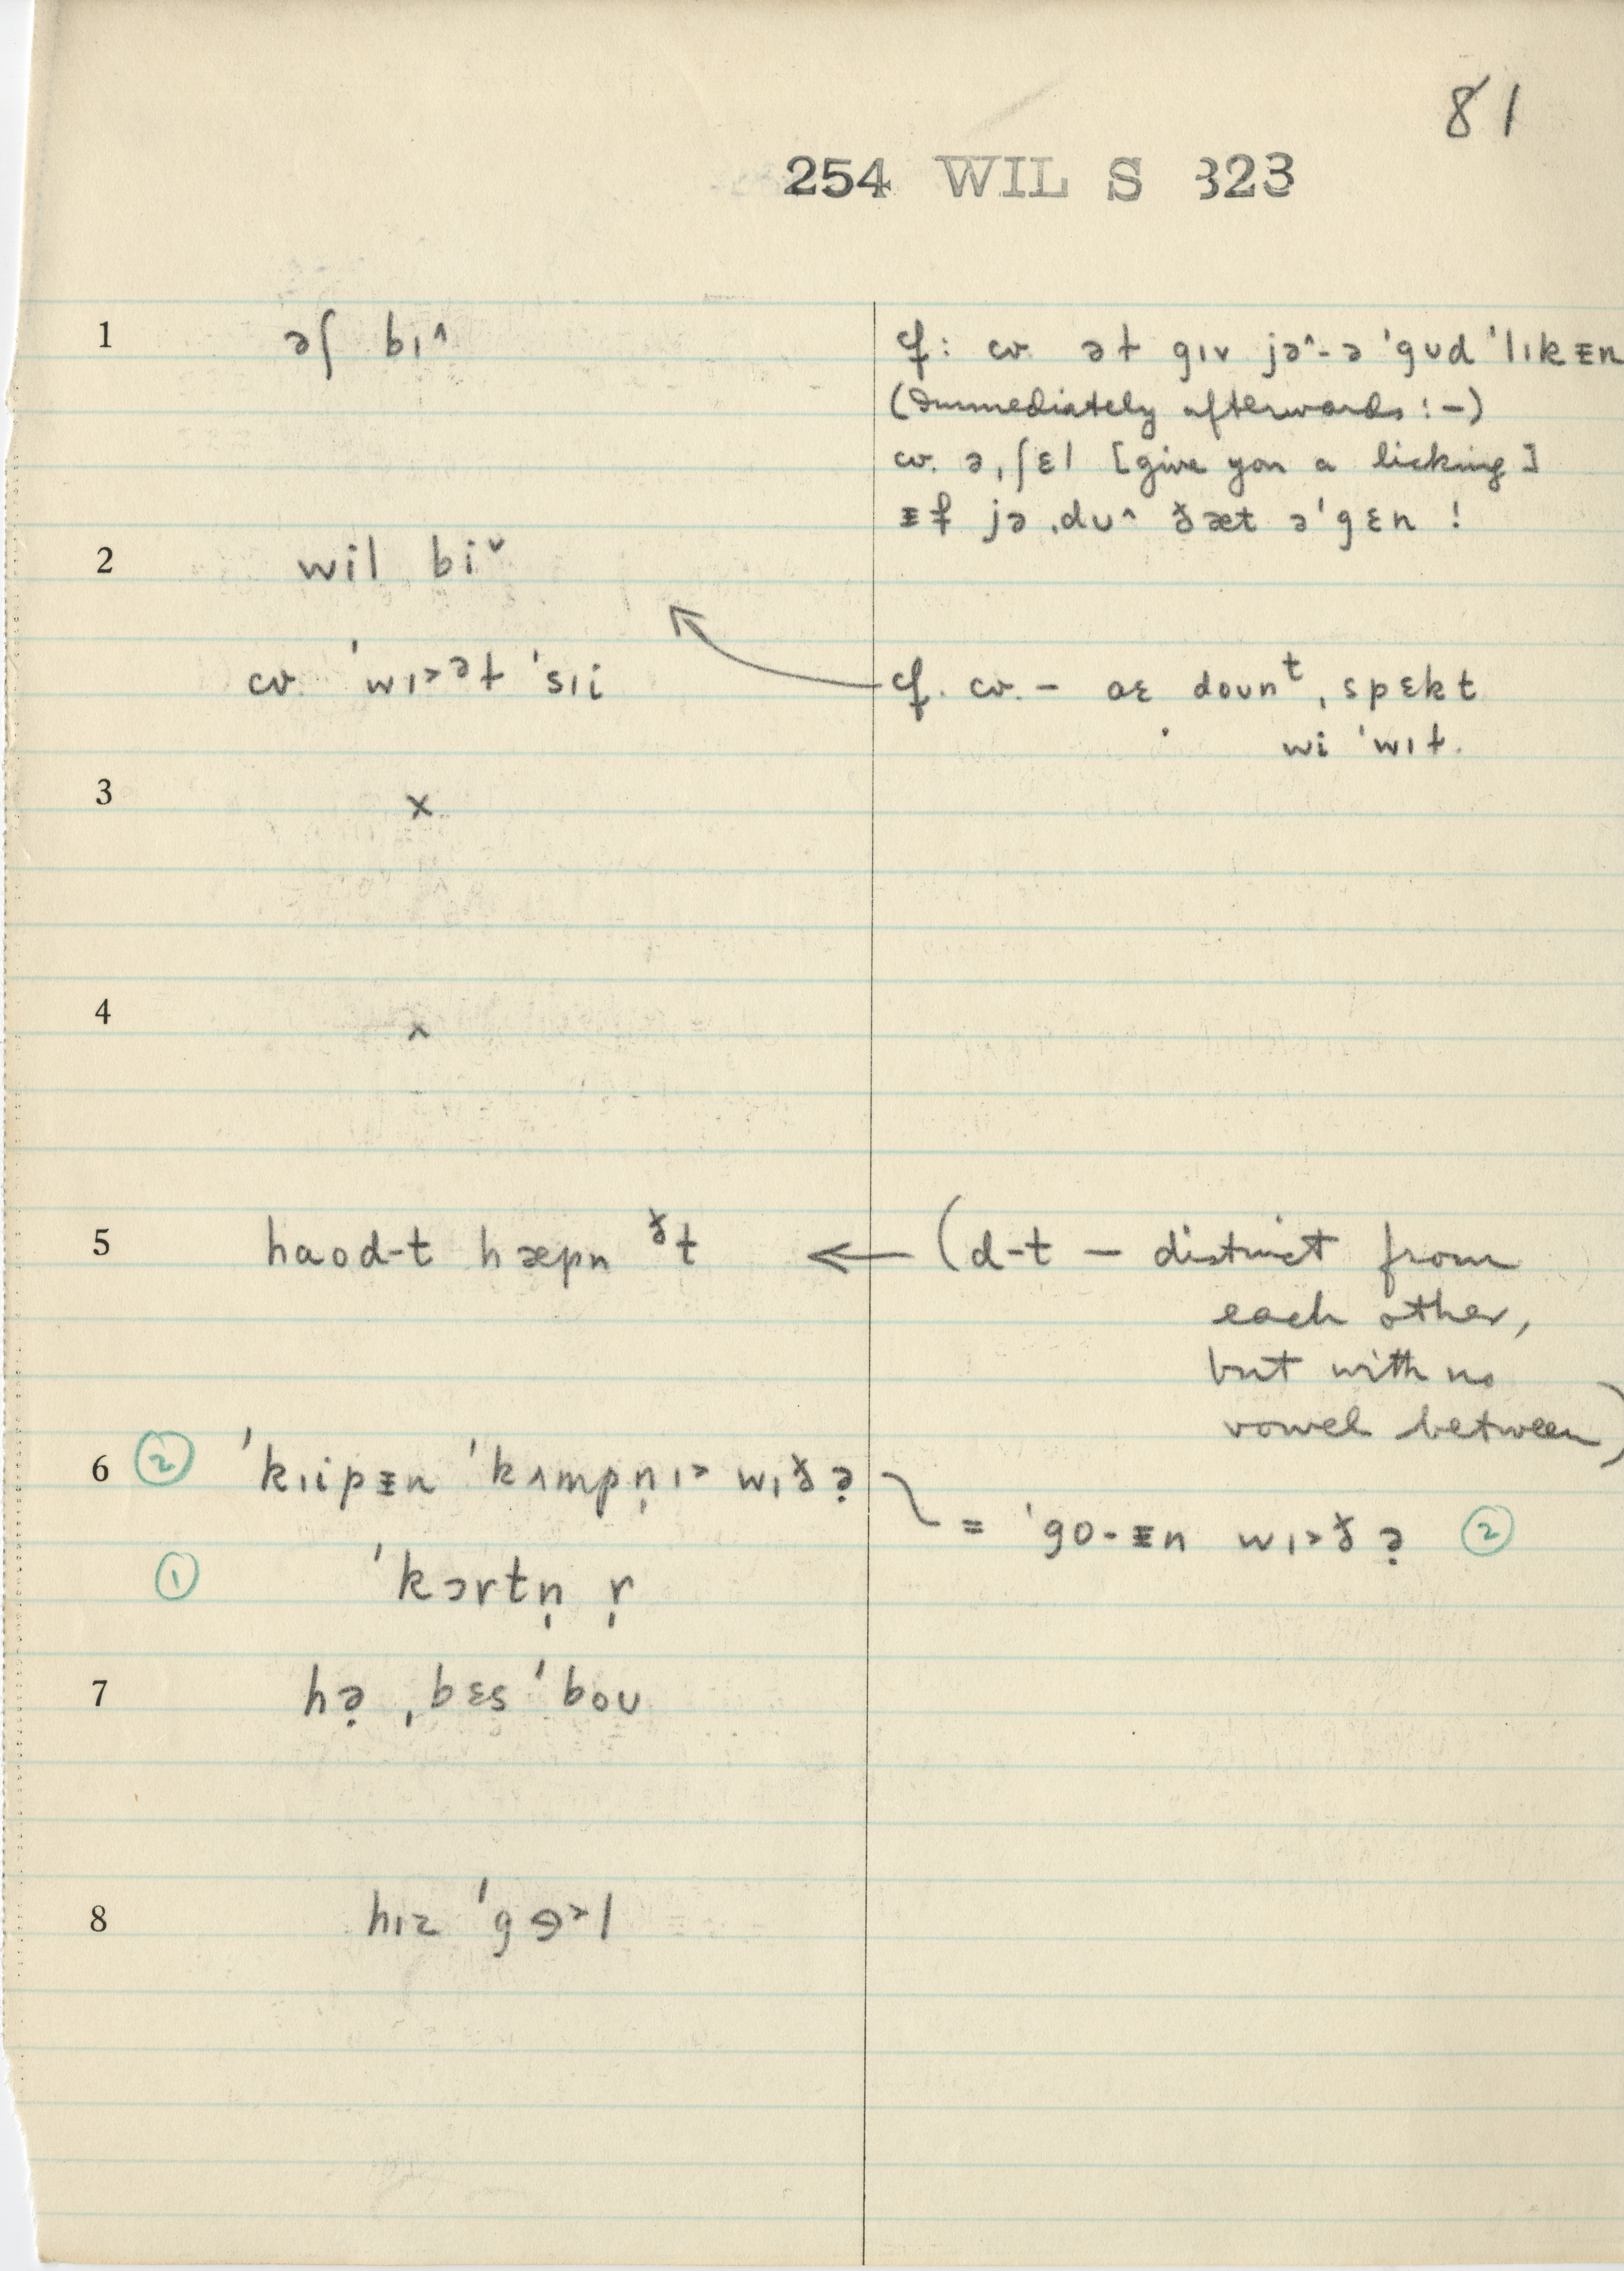 81
254 WIL S 323
1 əʃ bɪ^
cf: cv. əɫ gɪv jə^-ə ˈgʊd ˈlɪkᵻn
(Immediately afterwards :-)
cv. əˌʃɛl [give you a licking]
ᵻf jə ˌdʊ^ ðæt əˈgɛn !
2 wil biˇ
cv. ˈwɪ>ᵊɫ ˈsɪi
cf. cv. – aɛ doʊnᵗ ˌspɛkt
wi ˈwɪɫ.
3 x
4 ^
5 haod-t hæpn ᶞt ← (d-t – distinct from
each other,
but with no
vowel between)
6 ② ˈkɪipᵻn ˈkʌmpn̩ɪ> wɪðə̣
= ˈgo-ᵻn wɪ>ðə̣ ②
① ˈkɔrtn̩ r̩
7 hə̣ ˌbɛs ˈboʊ
8 hɪz ˈgɘ>l